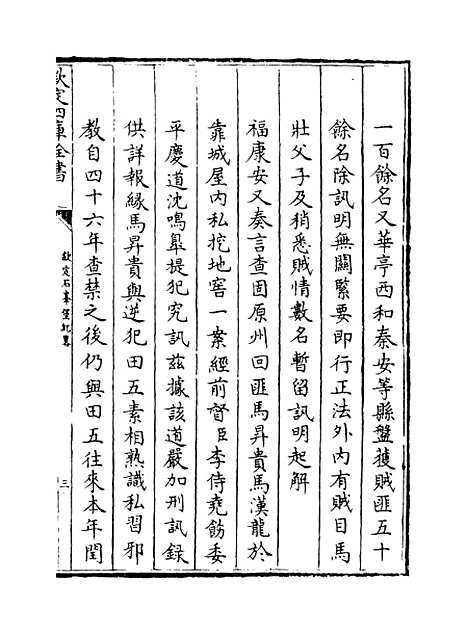 一百餘名又華亭西和秦安等縣盤獲賊匪五十
餘名除訊明無關緊要即行正法外内有賊目馬
壯父子及稍悉賊情數名暫留訊明起解
福康安又奏言查固原州回匪馬昇貴馬漢龍於
靠城屋内私挖地窖一案經前督臣李侍堯飭委
平慶道沈鳴臯提犯究訊兹據該道嚴加刑訊録
供詳報緣馬昇貴與逆犯田五素相熟識私習邪
教自四十六年查禁之後仍與田五往來本年閏
欽定四庫全書
欽定石峯堡紀畧
三